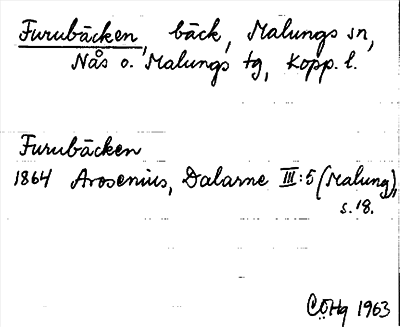 Furubäcken, bäck, Malungs sn,
Nås o. Malungs tg, Kopp. l.
Furubäcken
1864 Arosenius, Dalarne III:5 (Malung),
s. 18.
CÖHg 1963